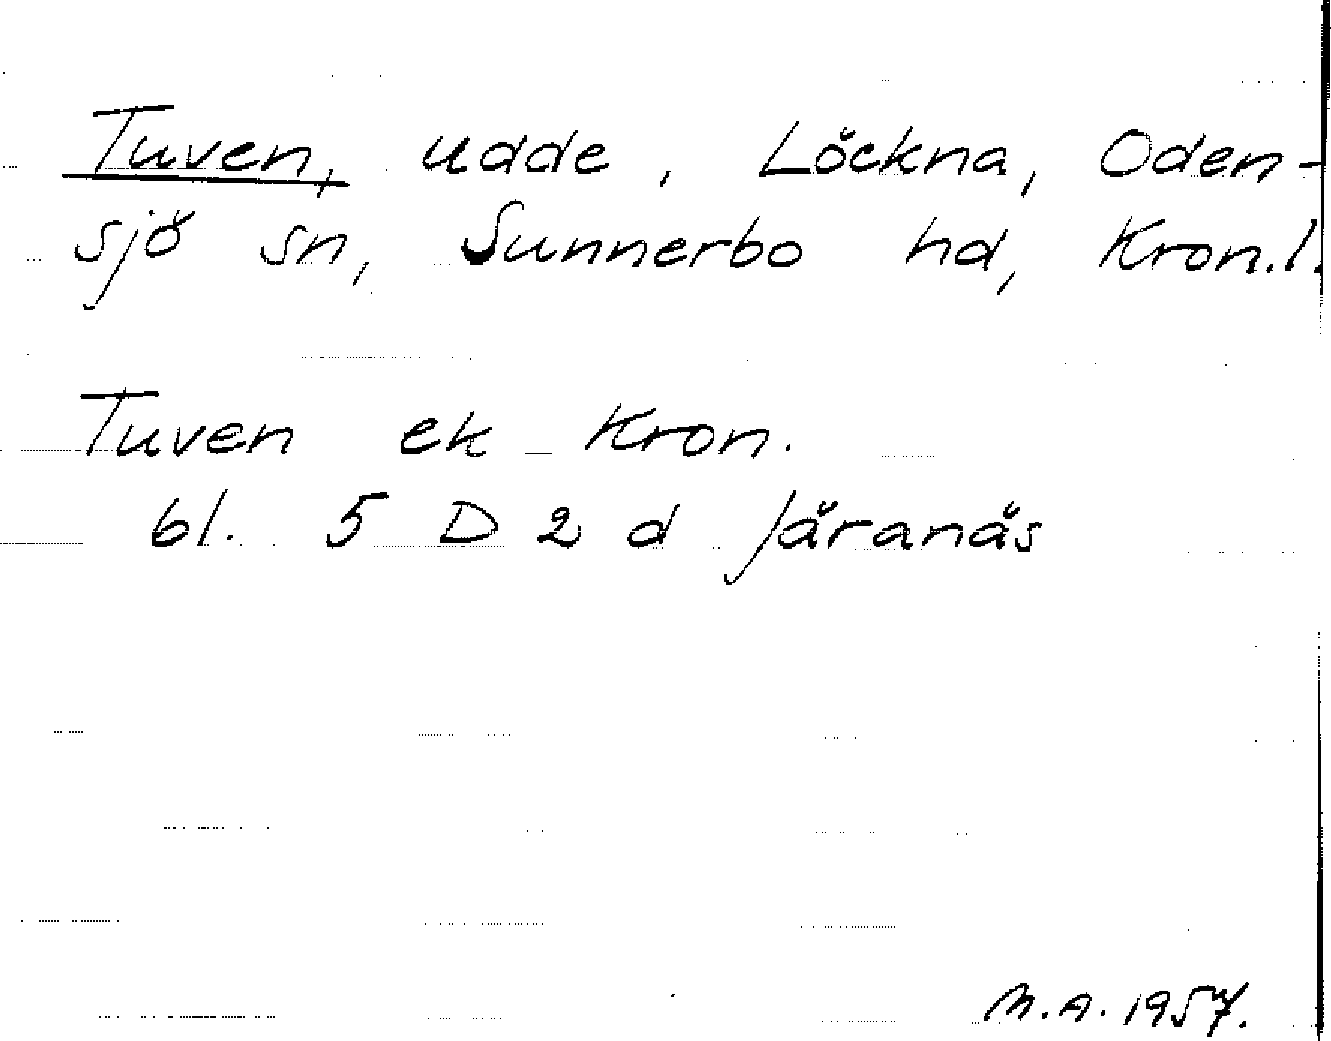 Tuven, udde, Löckna, Oden-
sjö sn, Sunnerbo hd, Kron.l.
Tuven ek Kron.
bl. 5 D 2 d Järanäs
M.A. 1957.